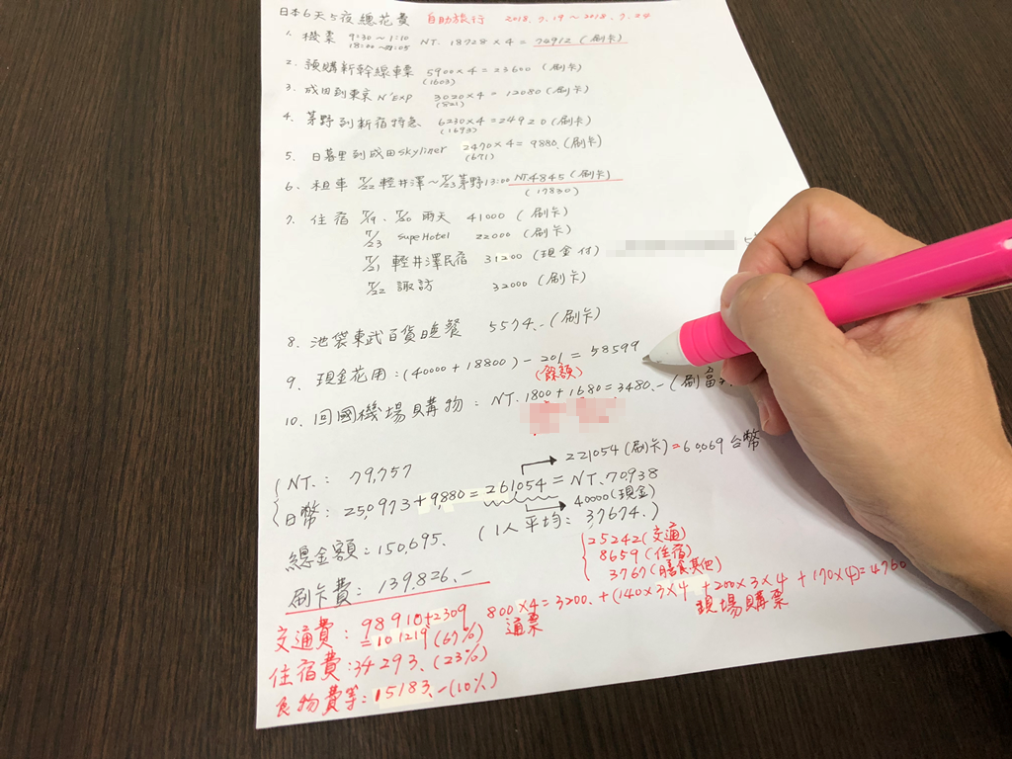 日本6天5夜總花費 自助旅行 2018.7.19～2018.7.24
1. 機票 9:30～1:10 NT. 18728×4=74912(刷卡)
18:00～
2. 預購新幹線車票 5900×4=23600 (刷卡)
(1603)
3. 成田到東京N'EXP 3020×4=12080(刷卡)
(821)
4. 茅野到新宿特急 6230×4=24920(刷卡)
(1693)
5. 日暮里到成田skyliner 2470×4=9880.(刷卡)
(671)
6. 租車 7/22輕井澤～7/23茅野13:00 NT.4845(刷卡)
(17830)
7. 住宿 7/19、7/20 兩天 41000 (刷卡)
7/23 supeHotel 22000 (刷卡)
7/21 輕井澤民宿 31200 (現金付)
7/22 諏訪 32000 (刷卡)
8. 池袋東武百貨晚餐 5574.-(刷卡)
9. 現金花用:(40000+18800)-201=58599
(餘額)
10. 回國機場購物: NT.1800+1680=3480.-(刷富
221054(刷卡)=60,069台幣
NT.: 79,757
日幣: 250,973+9,880=261,054=NT.70,938
40000(現金)
總金額:150,695. (1人平均: 37,674.)
25242(交通)
8659(住宿)
3767(膳食其他)
刷卡費:139,826.-
交通費: 98910+2309 800×4=3200.+(140×3×4+200×3×4+170×4)=4760
=101219(67%) 通票 現場購票
住宿費:34293.(23%)
食物費等:15183.-(10%)